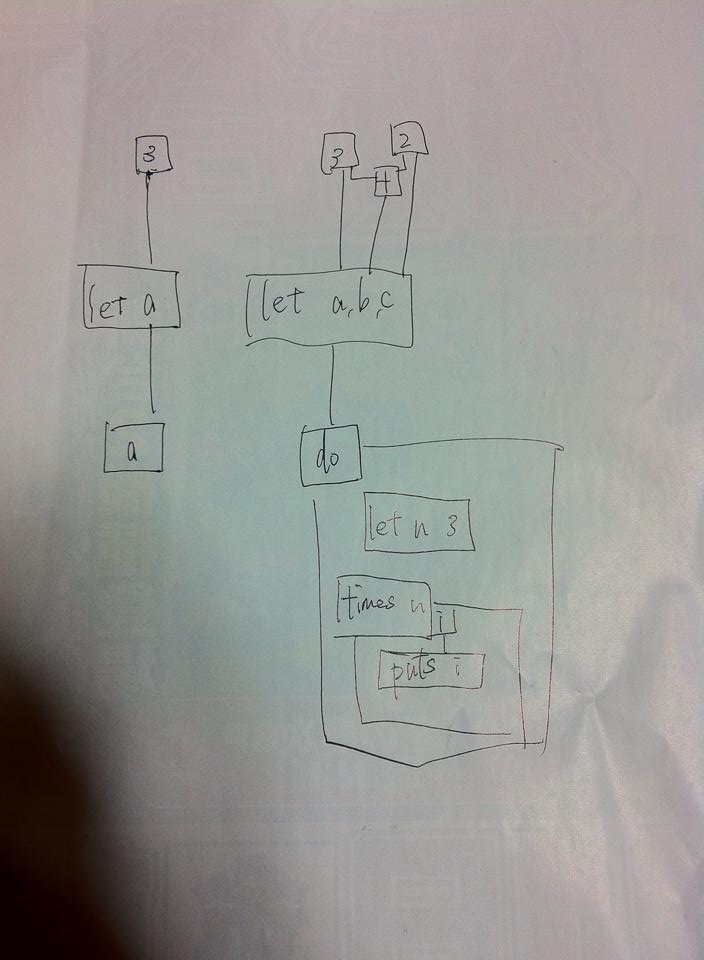 3
let a
a
3
2
+
let a,b,c
do
let n 3
times n
i
puts i